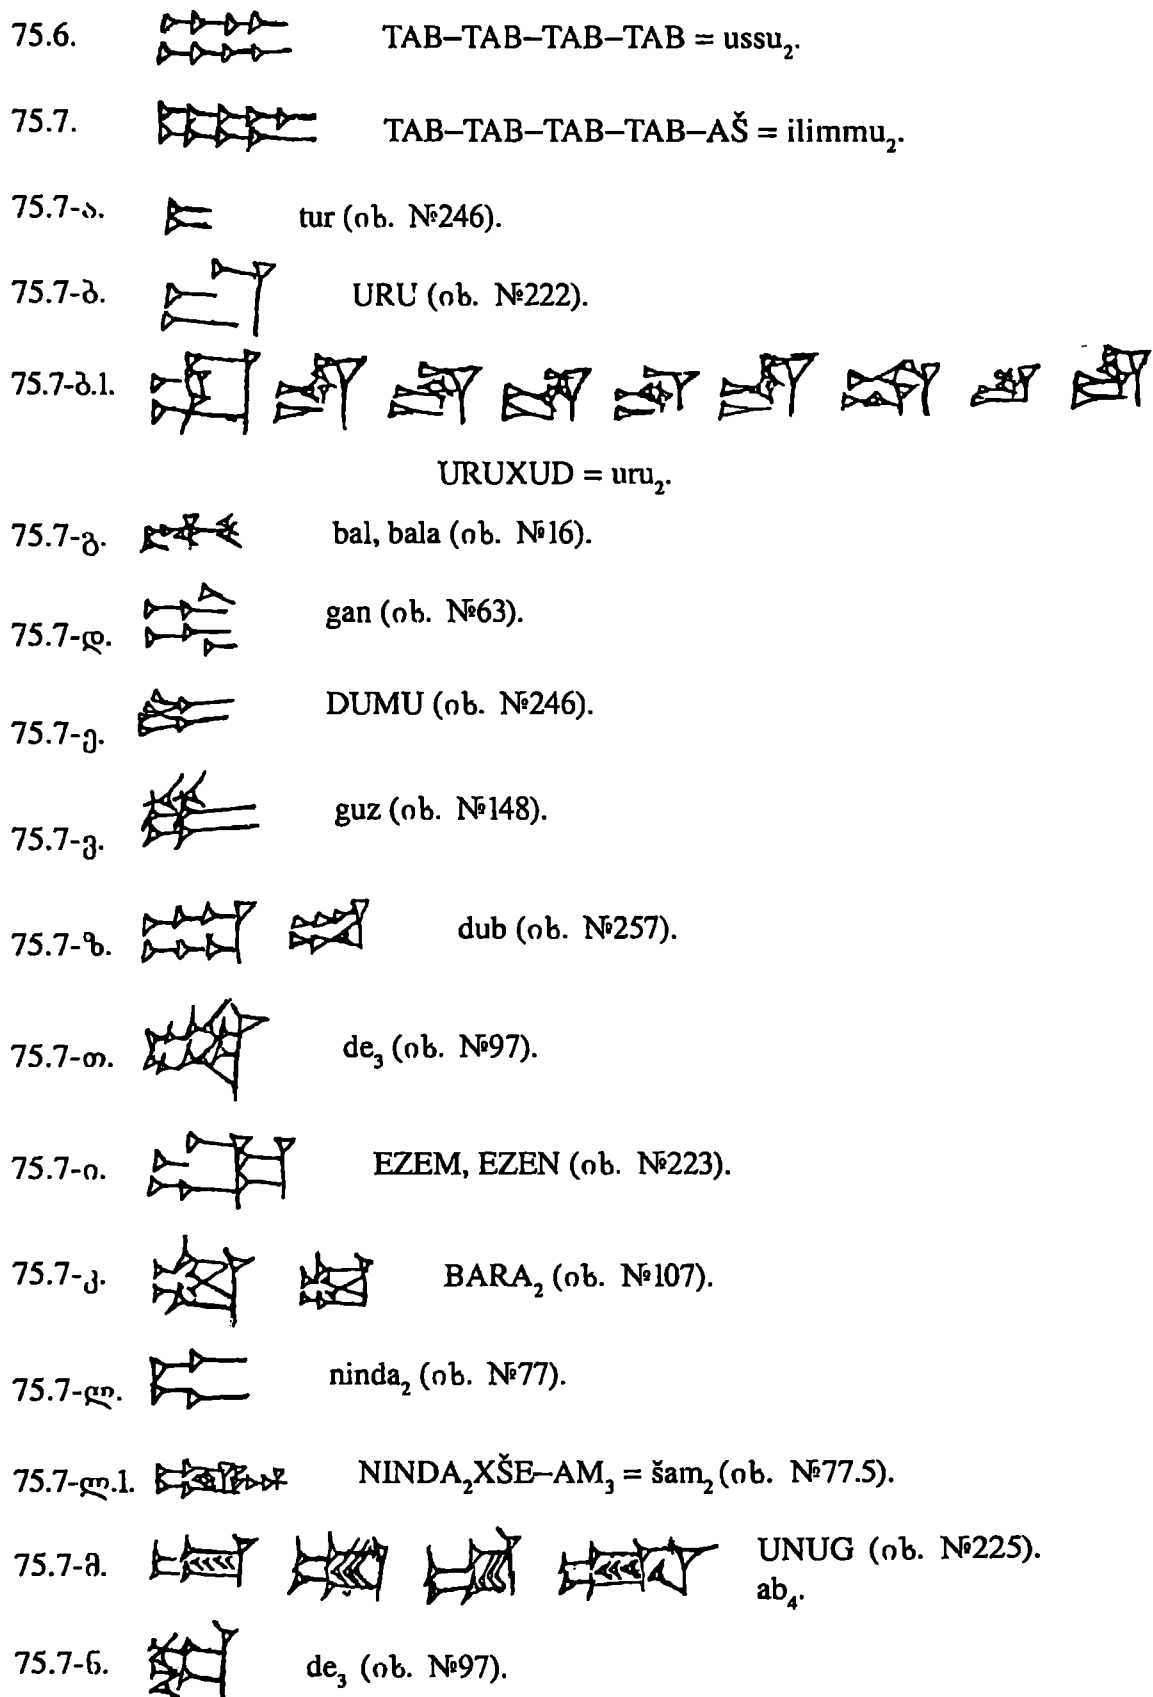 75.6. TAB–TAB–TAB–TAB = ussu₂.
75.7. TAB–TAB–TAB–TAB–AŠ = ilimmu₂.
75.7-ა. tur (იხ. №246).
75.7-ბ. URU (იხ. №222).
75.7-ბ.1.
URUXUD = uru₂.
75.7-გ. bal, bala (იხ. №16).
75.7-დ. gan (იხ. №63).
75.7-ე. DUMU (იხ. №246).
75.7-ვ. guz (იხ. №148).
75.7-ზ. dub (იხ. №257).
75.7-თ. de₃ (იხ. №97).
75.7-ი. EZEM, EZEN (იხ. №223).
75.7-კ. BARA₂ (იხ. №107).
75.7-ლ. ninda₂ (იხ. №77).
75.7-ლ.1. NINDA₂XŠE–AM₃ = šam₂ (იხ. №77.5).
75.7-მ. UNUG (იხ. №225).
ab₄.
75.7-ნ. de₃ (იხ. №97).